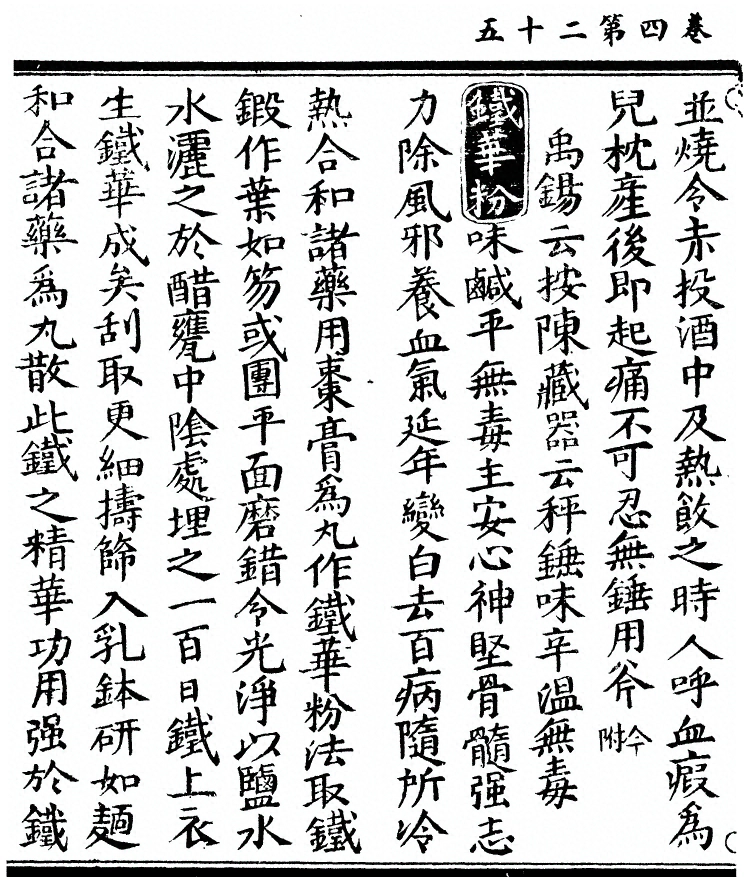 卷四第二十五
並燒令赤投酒中及熱飲之時人呼血瘕為
兒枕産後即起痛不可忍無錘用斧今附
禹錫云按陳藏器云秤錘味辛溫無毒
鐵華粉味鹹平無毒主安心神堅骨髓强志
力除風邪養血氣延年變白去百病隨所冷
熱合和諸藥用棗膏爲丸作鐵華粉法取鐵
鍛作葉如笏或團平面磨錯令光淨以鹽水
水灑之於醋甕中陰處埋之一百日鐵上衣
生鐵華成矣刮取更細擣篩入乳鉢研如麵
和合諸藥爲丸散此鐵之精華功用强於鐵